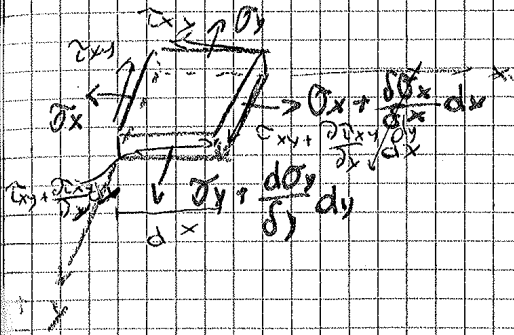 τxy σy
τxy
σx
σx + δσx/dx dx
τxy + ∂τxy/∂x dx
τxy + ∂τxy/∂y
σy + dσy/δy dy
d x
x
y